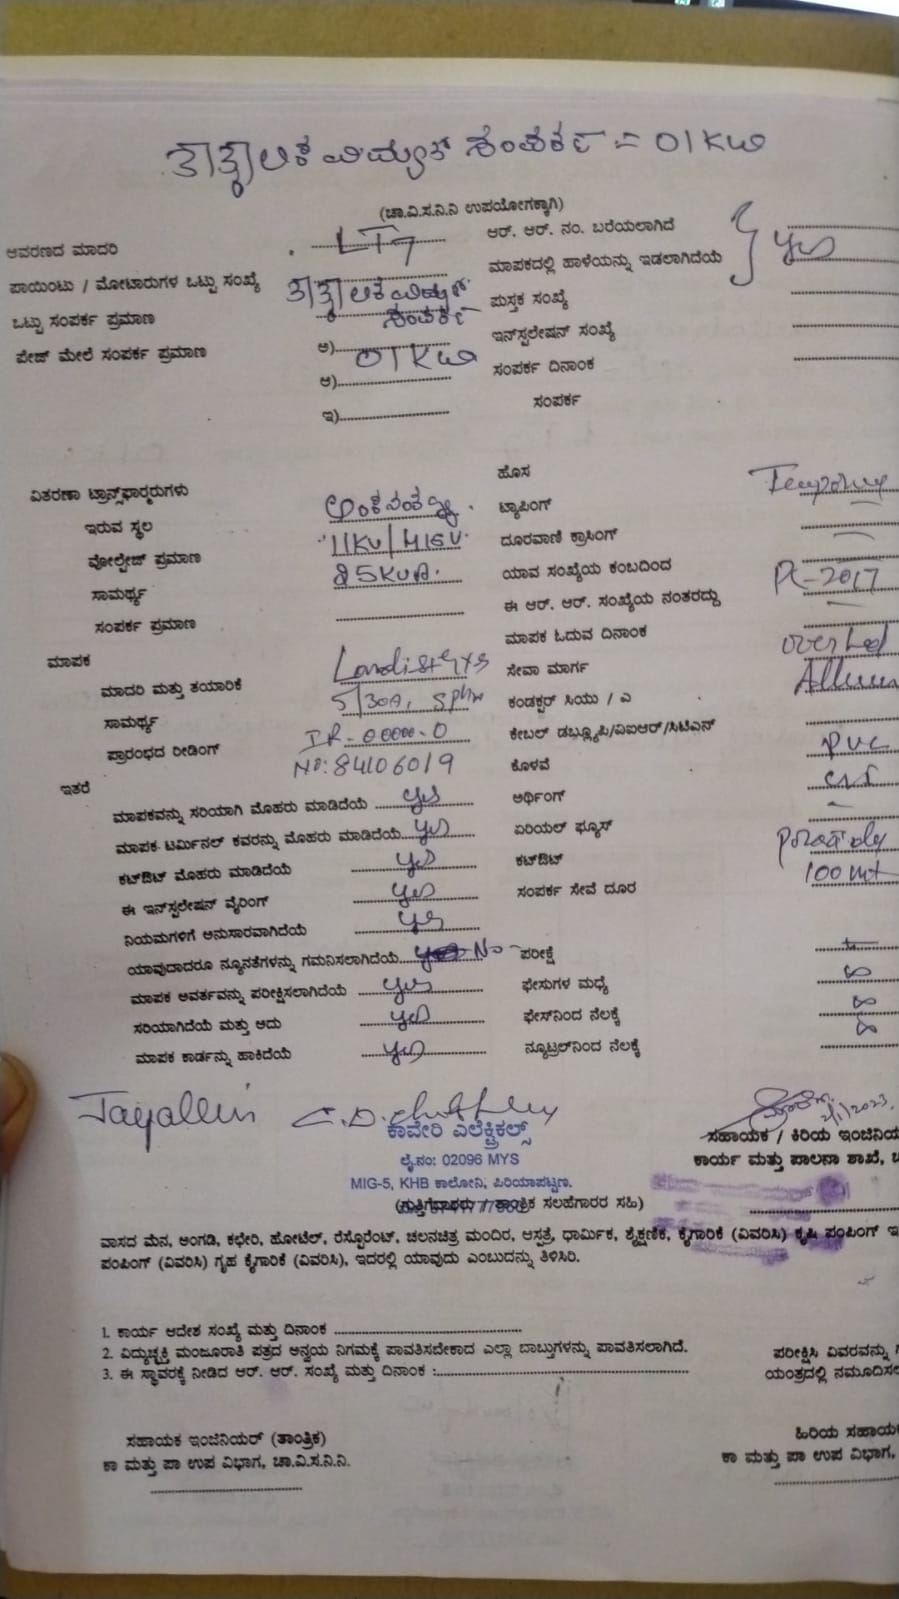 ತಾತ್ಕಾಲಿಕ ವಿದ್ಯುತ್ ಸಂಪರ್ಕ = 01KW
(ಚಾ.ವಿ.ಸ.ನಿ.ನಿ ಉಪಯೋಗಕ್ಕಾಗಿ)
ಆವರಣದ ಮಾದರಿ LT7 ಆರ್. ಆರ್. ನಂ. ಬರೆಯಲಾಗಿದೆ
ಪಾಯಿಂಟು / ಮೋಟಾರುಗಳ ಒಟ್ಟು ಸಂಖ್ಯೆ ತಾತ್ಕಾಲಿಕ ವಿದ್ಯುತ್ ಮಾಪಕದಲ್ಲಿ ಹಾಳೆಯನ್ನು ಇಡಲಾಗಿದೆಯೆ yes
ಒಟ್ಟು ಸಂಪರ್ಕ ಪ್ರಮಾಣ ಸಂಪರ್ಕ ಪುಸ್ತಕ ಸಂಖ್ಯೆ
ಪೇಜ್ ಮೇಲೆ ಸಂಪರ್ಕ ಪ್ರಮಾಣ ಅ) 01KW ಇನ್‌ಸ್ಟಲೇಷನ್ ಸಂಖ್ಯೆ
ಆ) ಸಂಪರ್ಕ ದಿನಾಂಕ
ಇ) ಸಂಪರ್ಕ
ವಿತರಣಾ ಟ್ರಾನ್ಸ್‌ಫಾರ್ಮರುಗಳು ಹೊಸ Temporary
ಇರುವ ಸ್ಥಳ ಟ್ಯಾಪಿಂಗ್
ವೋಲ್ಟೇಜ್ ಪ್ರಮಾಣ 11KV/415V ದೂರವಾಣಿ ಕ್ರಾಸಿಂಗ್
ಸಾಮರ್ಥ್ಯ 25KVA. ಯಾವ ಸಂಖ್ಯೆಯ ಕಂಬದಿಂದ
ಸಂಪರ್ಕ ಪ್ರಮಾಣ ಈ ಆರ್. ಆರ್. ಸಂಖ್ಯೆಯ ನಂತರದ್ದು
ಮಾಪಕ ಮಾಪಕ ಓದುವ ದಿನಾಂಕ
ಮಾದರಿ ಮತ್ತು ತಯಾರಿಕೆ Landis+Gyrs ಸೇವಾ ಮಾರ್ಗ
ಸಾಮರ್ಥ್ಯ 5/30A, ಕಂಡಕ್ಟರ್ ಸಿಯು / ಎ
ಪ್ರಾರಂಭದ ರೀಡಿಂಗ್ IR-00000.0 ಕೇಬಲ್ ಡಬ್ಲ್ಯೂಪಿ/ವಿಐಆರ್/ಸಿಟಿಎಸ್ PVC
No:84106019 ಕೊಳವೆ
ಇತರೆ
ಮಾಪಕವನ್ನು ಸರಿಯಾಗಿ ಮೊಹರು ಮಾಡಿದೆಯೆ yes ಅರ್ಥಿಂಗ್
ಮಾಪಕ ಟರ್ಮಿನಲ್ ಕವರನ್ನು ಮೊಹರು ಮಾಡಿದೆಯೆ yes ಏರಿಯಲ್ ಫ್ಯೂಸ್
ಕಟ್‌ಔಟ್ ಮೊಹರು ಮಾಡಿದೆಯೆ yes ಕಟ್‌ಔಟ್
ಈ ಇನ್‌ಸ್ಟಲೇಷನ್ ವೈರಿಂಗ್ yes ಸಂಪರ್ಕ ಸೇವೆ ದೂರ 100 mt
ನಿಯಮಗಳಿಗೆ ಅನುಸಾರವಾಗಿದೆಯೆ yes
ಯಾವುದಾದರೂ ನ್ಯೂನತೆಗಳನ್ನು ಗಮನಿಸಲಾಗಿದೆಯೆ No ಪರೀಕ್ಷೆ
ಮಾಪಕ ಆವರ್ತವನ್ನು ಪರೀಕ್ಷಿಸಲಾಗಿದೆಯೆ yes ಫೇಸುಗಳ ಮಧ್ಯೆ ∞
ಸರಿಯಾಗಿದೆಯೆ ಮತ್ತು ಅದು yes ಫೇಸ್‌ನಿಂದ ನೆಲಕ್ಕೆ ∞
ಮಾಪಕ ಕಾರ್ಡನ್ನು ಹಾಕಿದೆಯೆ yes ನ್ಯೂಟ್ರಲ್‌ನಿಂದ ನೆಲಕ್ಕೆ ∞
2/1/2023
ಕಾವೇರಿ ಎಲೆಕ್ಟ್ರಿಕಲ್ಸ್ ಸಹಾಯಕ / ಕಿರಿಯ ಇಂಜಿನಿಯ
ಲೈ.ನಂ: 02096 MYS ಕಾರ್ಯ ಮತ್ತು ಪಾಲನಾ ಶಾಖೆ,
MIG-5, KHB ಕಾಲೋನಿ, ಪಿರಿಯಾಪಟ್ಟಣ.
(ಗುತ್ತಿಗೆದಾರರು / ತಾಂತ್ರಿಕ ಸಲಹೆಗಾರರ ಸಹಿ)
ವಾಸದ ಮನೆ, ಅಂಗಡಿ, ಕಛೇರಿ, ಹೋಟೆಲ್, ರೆಸ್ಟೋರೆಂಟ್, ಚಲನಚಿತ್ರ ಮಂದಿರ, ಆಸ್ಪತ್ರೆ, ಧಾರ್ಮಿಕ, ಶೈಕ್ಷಣಿಕ, ಕೈಗಾರಿಕೆ (ವಿವರಿಸಿ) ಕೃಷಿ ಪಂಪಿಂಗ್
ಪಂಪಿಂಗ್ (ವಿವರಿಸಿ) ಗೃಹ ಕೈಗಾರಿಕೆ (ವಿವರಿಸಿ), ಇದರಲ್ಲಿ ಯಾವುದು ಎಂಬುದನ್ನು ತಿಳಿಸಿರಿ.
1. ಕಾರ್ಯ ಆದೇಶ ಸಂಖ್ಯೆ ಮತ್ತು ದಿನಾಂಕ
2. ವಿದ್ಯುಚ್ಛಕ್ತಿ ಮಂಜೂರಾತಿ ಪತ್ರದ ಅನ್ವಯ ನಿಗಮಕ್ಕೆ ಪಾವತಿಸಬೇಕಾದ ಎಲ್ಲಾ ಬಾಬ್ತುಗಳನ್ನು ಪಾವತಿಸಲಾಗಿದೆ. ಪರೀಕ್ಷಿಸಿ ವಿವರವನ್ನು
3. ಈ ಸ್ಥಾವರಕ್ಕೆ ನೀಡಿದ ಆರ್. ಆರ್. ಸಂಖ್ಯೆ ಮತ್ತು ದಿನಾಂಕ : ಯಂತ್ರದಲ್ಲಿ ನಮೂದಿಸ
ಸಹಾಯಕ ಇಂಜಿನಿಯರ್ (ತಾಂತ್ರಿಕ) ಹಿರಿಯ ಸಹಾಯ
ಕಾ ಮತ್ತು ಪಾ ಉಪ ವಿಭಾಗ, ಚಾ.ವಿ.ಸ.ನಿ.ನಿ. ಕಾ ಮತ್ತು ಪಾ ಉಪ ವಿಭಾಗ,